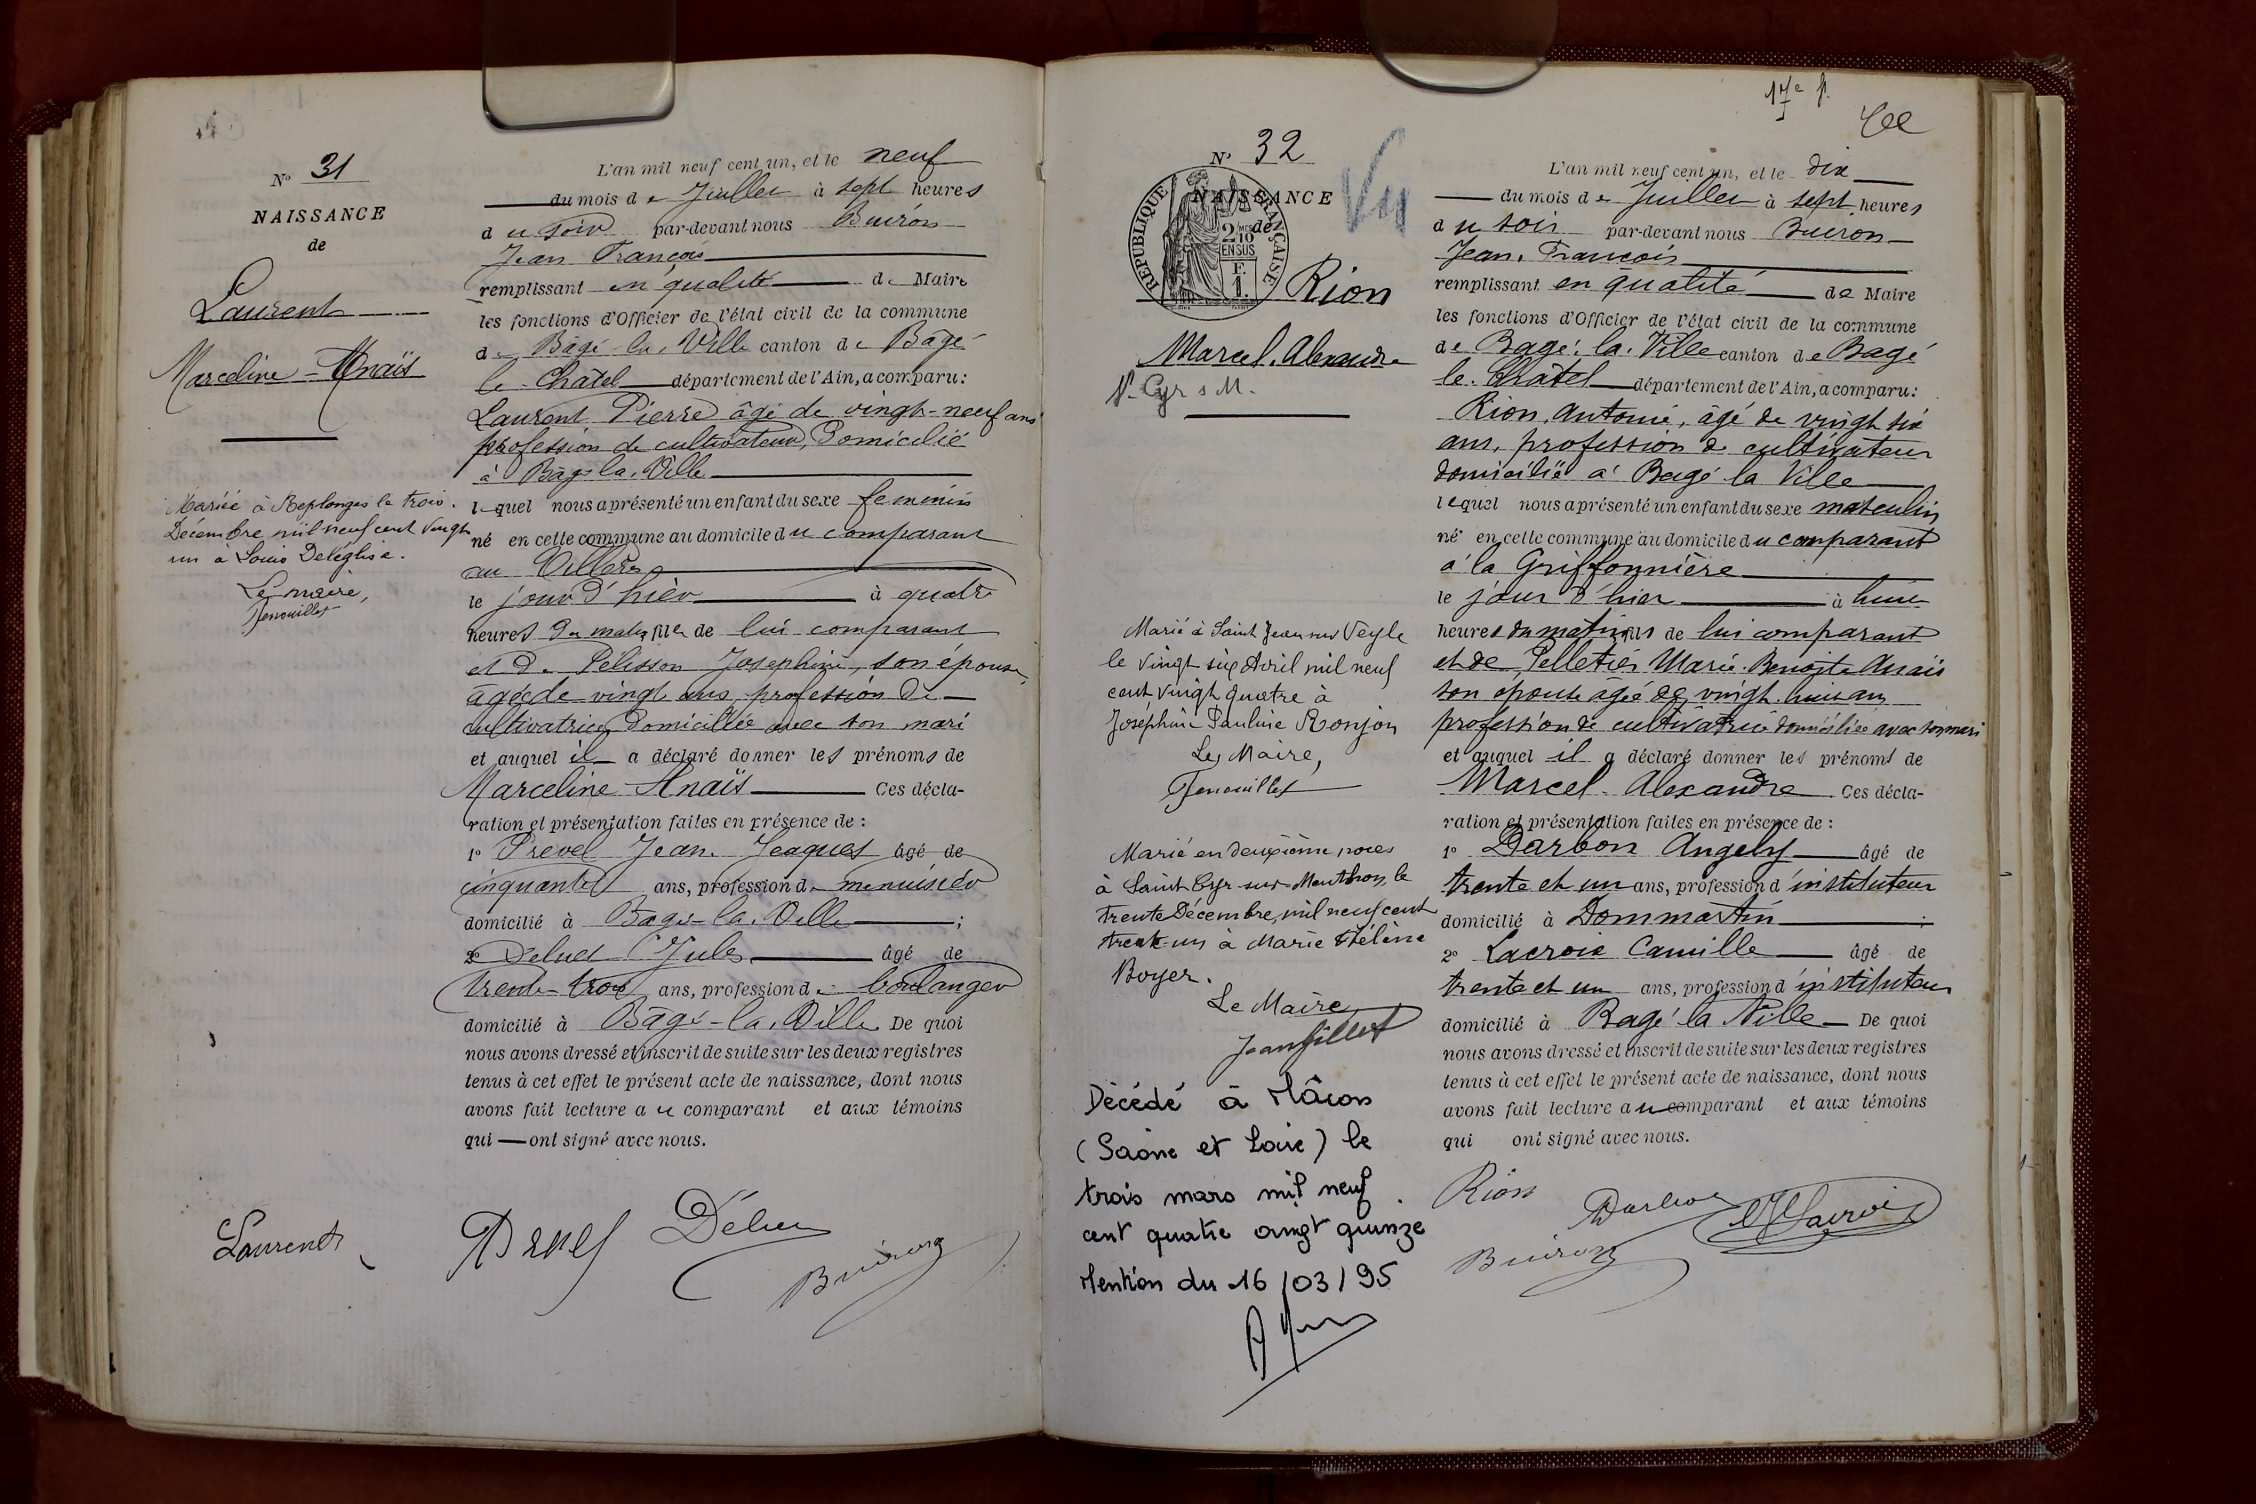 N° 31
NAISSANCE
de
Laurent
Marceline-Anaïs
Mariée à Replonges le trois
Décembre mil neuf cent vingt
un à Louis Deléglise.
Le maire,
L'an mil neuf cent un, et le neuf
du mois de Juillet à sept heures
du soir par-devant nous Buiron
Jean François
remplissant en qualité de Maire
les fonctions d'Officier de l'état civil de la commune
de Bâgé la Ville canton de Bâgé
le Châtel département de l'Ain, a comparu:
Laurent Pierre âgé de vingt-neuf ans
profession de cultivateur, Domicilié
à Bâgé la Ville
lequel nous a présenté un enfant du sexe feminin
né en cette commune au domicile du comparant
au
le jour d'hier à quatre
heures du matin fille de lui comparant
et de Pélisson Josephine, son épouse,
agée de vingt ans profession de
cultivatrice, Domiciliée avec son mari
et auquel il a déclaré donner les prénoms de
Marceline Anaïs Ces décla-
ration et présentation faites en présence de :
1° Prevel Jean Jeaques âgé de
cinquante ans, profession de menuisier
domicilié à Bâgé-la-Ville ;
2° Jules âgé de
trente trois ans, profession de boulanger
domicilié à Bâgé-la-Ville De quoi
nous avons dressé et inscrit de suite sur les deux registres
tenus à cet effet le présent acte de naissance, dont nous
avons fait lecture au comparant et aux témoins
qui ont signé avec nous.
Laurent
Buiron
17e f.
N° 32
NAISSANCE
de
RÉPUBLIQUE FRANÇAISE
2 MES
10
EN SUS
F.
1.
Vu
Rion
Marcel. Alexandre
St Cyr s M.
Marié à Saint Jean sur Veyle
le vingt six Avril mil neuf
cent vingt quatre à
Joséphine Pauline Ronjon
Le Maire,
Marié en deuxième noces
à Saint Cyr sur Menthon, le
trente Décembre, mil neuf cent
trente-un à Marie Hélène
Boyer.
Le Maire,
Décédé à Mâcon
(Saône et Loire) le
trois mars mil neuf
cent quatre vingt quinze
Mention du 16/03/95
L'an mil neuf cent un, et le dix
du mois de Juillet à sept heures
du soir par-devant nous Buiron
Jean. François
remplissant en qualité de Maire
les fonctions d'Officier de l'état civil de la commune
de Bagé. la. Ville canton de Bagé
le. Châtel département de l'Ain, a comparu:
Rion, Antoine, âgé de vingt six
ans, profession de cultivateur
domicilié à Bagé la Ville
lequel nous a présenté un enfant du sexe masculin
né en cette commune au domicile du comparant
à la Griffonnière
le jour d'hier à huit
heures du matin, fils de lui comparant
et de Pelletier Marie. Benoite Anaïs
son épouse âgée de vingt. huit ans
profession de cultivatrice domiciliée avec son mari
et auquel il a déclaré donner les prénoms de
Marcel. Alexandre Ces décla-
ration et présentation faites en présence de :
1° Darbon Angely âgé de
trente et un ans, profession d'instituteur
domicilié à Dommartin ;
2° Lacroix Camille âgé de
trente et un ans, profession d'instituteur
domicilié à Bagé la Ville De quoi
nous avons dressé et inscrit de suite sur les deux registres
tenus à cet effet le présent acte de naissance, dont nous
avons fait lecture au comparant et aux témoins
qui ont signé avec nous.
Rion
Darbon
Lacroix
Buiron